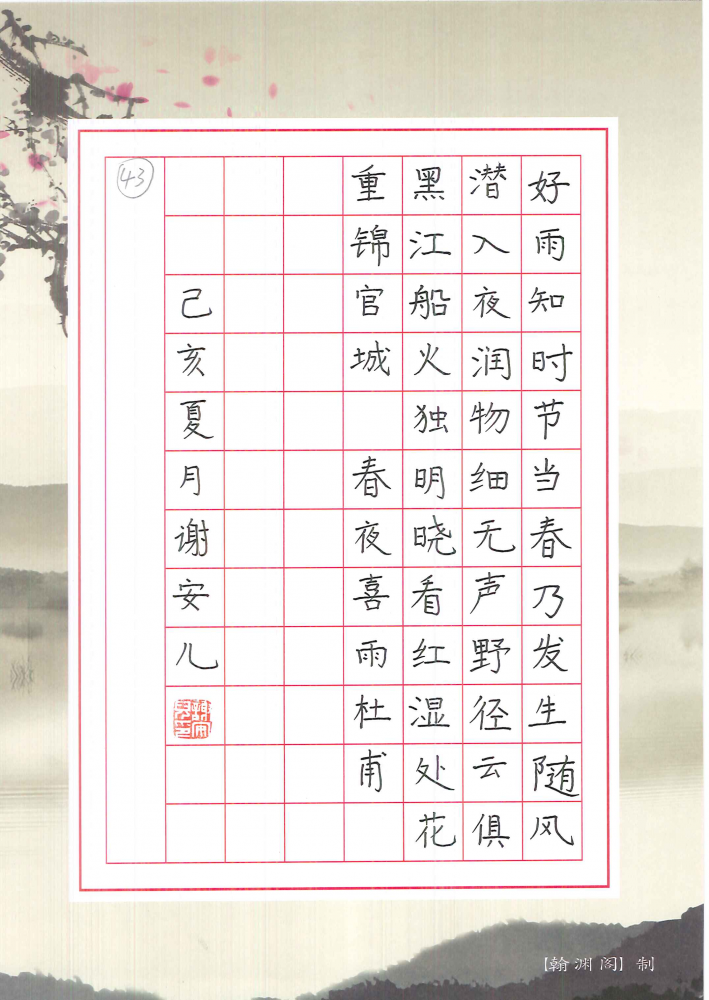 好雨知时节当春乃发生随风
潜入夜润物细无声野径云俱
黑江船火独明晓看红湿处花
重锦官城 春夜喜雨杜甫
己亥夏月谢安儿
43
【翰渊阁】制